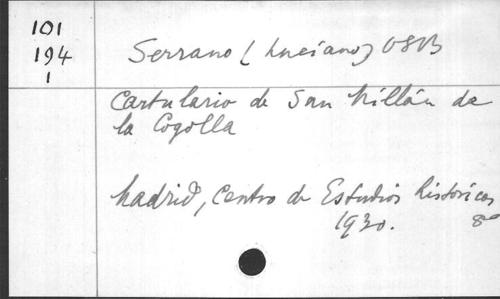 101
194
1
Serrano (Luciano) OSB
Cartulario de San Millán de
la Cogolla
Madrid, Centro de Estudios históricos
1930.
8º